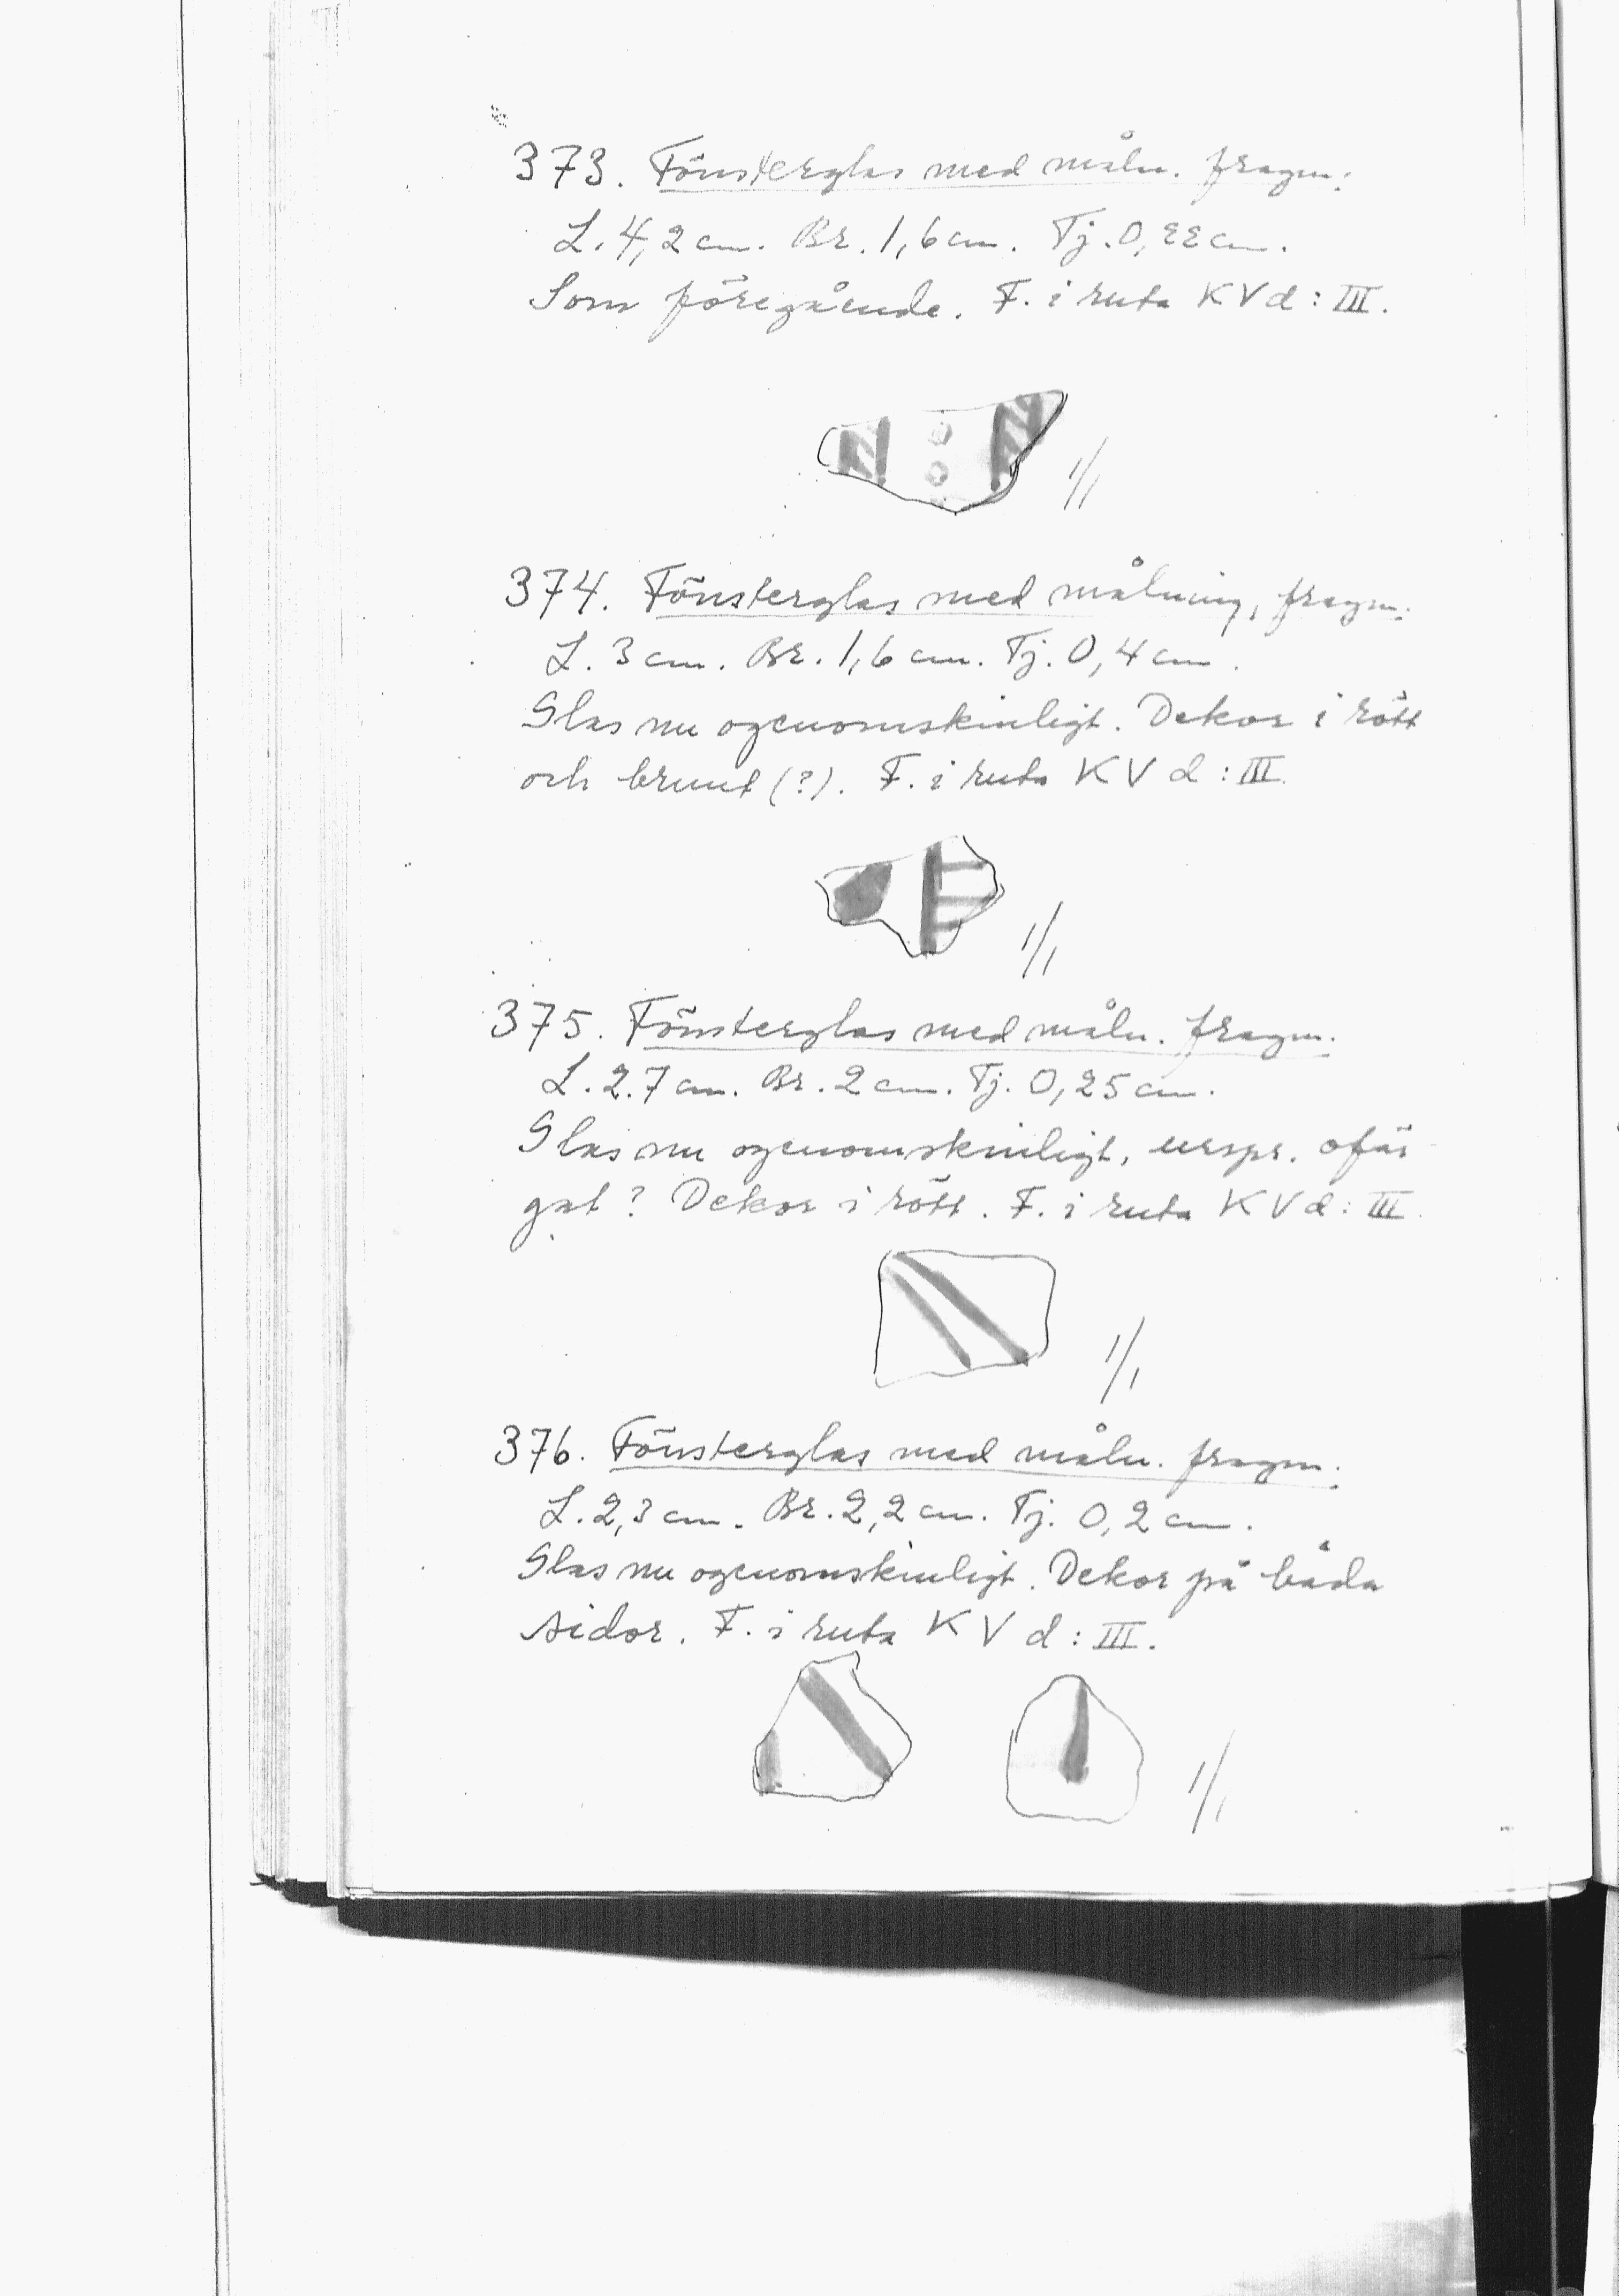 373. Fönsterglas med måln. fragm.
L. 4,2 cm. Br. 1,6 cm. Tj. 0,22 cm.
Som föregående. F. i ruta KVd: III.
1/1
374. Fönsterglas med målning, fragm.
L. 3 cm. Br. 1,6 cm. Tj. 0,4 cm.
Glas nu ogenomskinligt. Dekor i rött
och brunt (?). F. i ruta KVd: III.
1/1
375. Fönsterglas med måln. fragm.
L. 2.7 cm. Br. 2 cm. Tj. 0,25 cm.
Glas nu ogenomskinligt, urspr. ofär-
gat? Dekor i rött. F. i ruta KVd: III.
1/1
376. Fönsterglas med måln. fragm.
L. 2,3 cm. Br. 2,2 cm. Tj. 0,2 cm.
Glas nu ogenomskinligt. Dekor på båda
sidor. F. i ruta KVd: III.
1/1